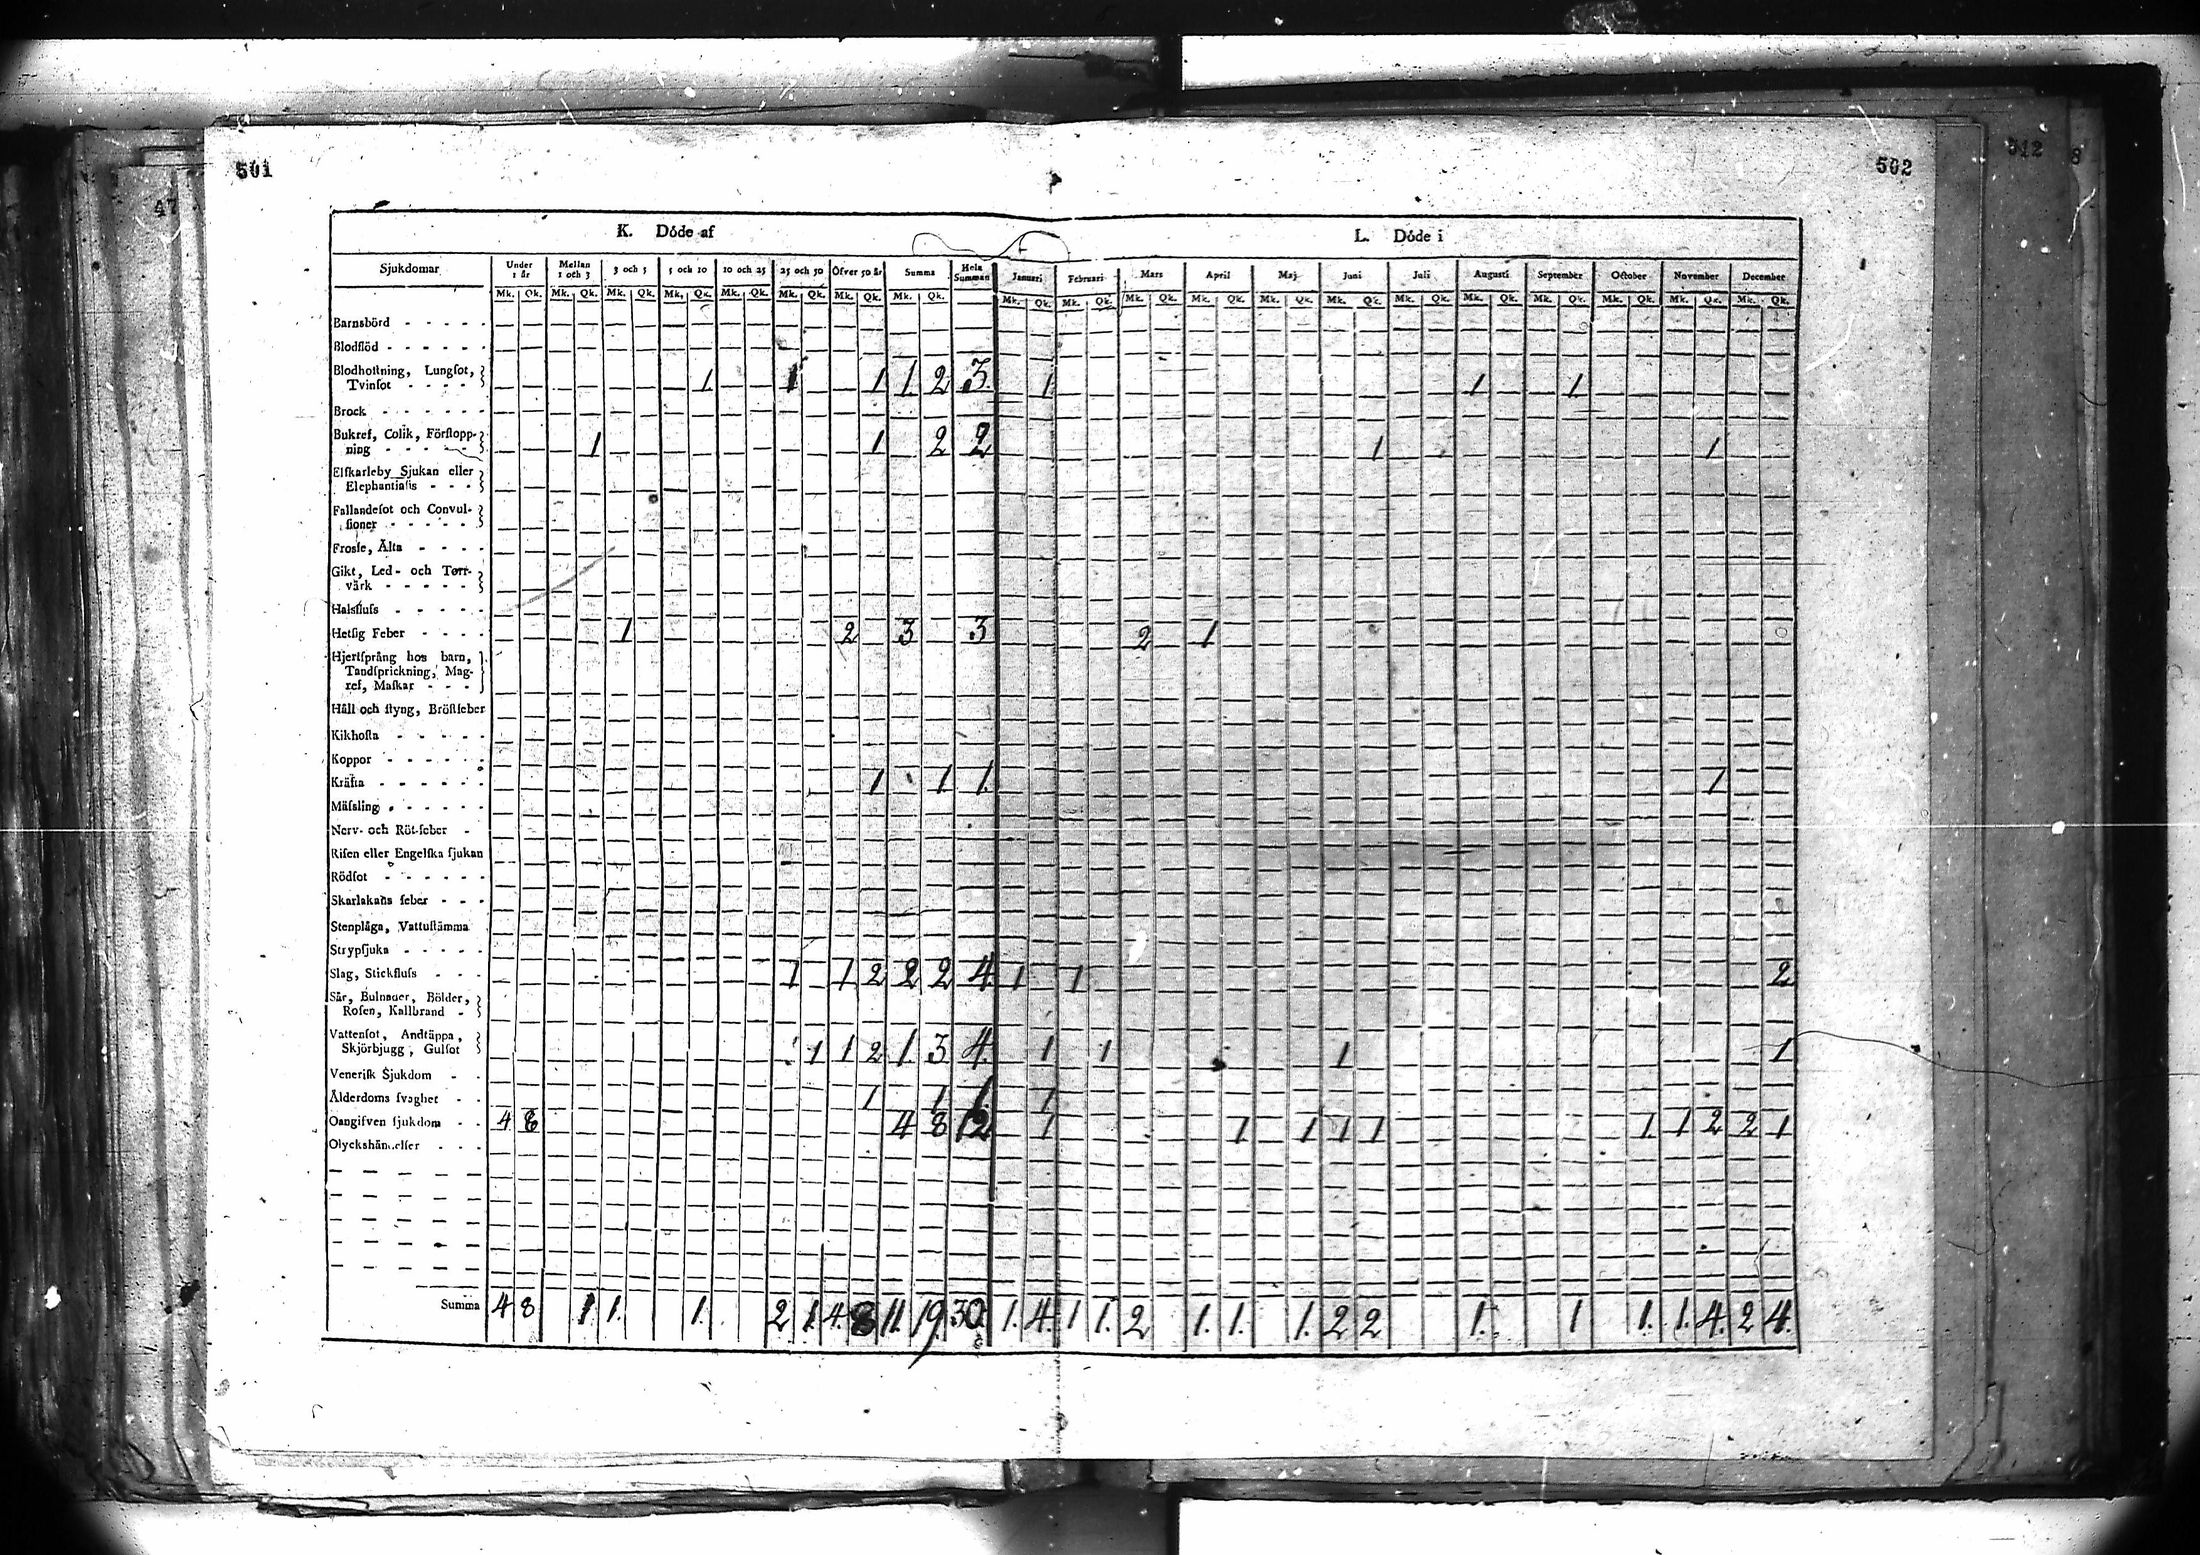 501
502
312 8
47
K. Döde af
L. Döde i
Sjukdomar Under 1 år Mellan 1 och 3 3 och 5 5 och 10 10 och 25 25 och 50 Öfver 50 år Summa Hela Summan Januari Februari Mars April Maj Juni Juli Augusti September October November December
Mk. Qk. Mk. Qk. Mk. Qk. Mk. Qk. Mk. Qk. Mk. Qk. Mk. Qk. Mk. Qk. Mk. Qk. Mk. Qk. Mk. Qk. Mk. Qk. Mk. Qk. Mk. Qk. Mk. Qk. Mk. Qk. Mk. Qk. Mk. Qk. Mk. Qk. Mk. Qk.
Barnsbörd - - - - -
Blodflöd - - - - - -
Blodhostning, Lungſot,
Tvinſot - - - - 1 1 1 1 2 3 1 1 1
Brock - - - - - -
Bukref, Colik, Förſtopp-
ning - - - - - 1 1 2 2 1 1
Elſkarleby Sjukan eller
Elephantiaſis - - -
Fallandeſot och Convul-
ſioner - - - - -
Frosſe, Älta - - - -
Gikt, Led- och Torr-
värk - - - - -
Halsfluſs - - - - -
Hetſig Feber - - - - 1 2 3 3 2 1
Hjertſprång hos barn,
Tandſprickning, Mag-
ref, Maſkar - - -
Håll och ſtyng, Bröſtfeber
Kikhoſta - - - - -
Koppor - - - - - -
Kräfta - - - - - - 1 1 1 1
Mäſsling - - - - - -
Nerv- och Röt-feber -
Riſen eller Engelſka ſjukan
Rödſot - - - - - -
Skarlakans feber - - -
Stenplåga, Vattuſtämma
Strypſjuka - - - - -
Slag, Stickfluſs - - - 1 1 2 2 2 4 1 1 2
Sår, Bulnader, Bölder,
Roſen, Kallbrand -
Vattenſot, Andtäppa,
Skjörbjugg, Gulſot 1 1 2 1 3 4 1 1 1 1
Veneriſk Sjukdom - -
Ålderdoms ſvaghet - - 1 1 1 1
Oangifven ſjukdom - - 4 8 4 8 12 1 1 1 1 1 1 1 2 2 1
Olyckshändelſer - - -
Summa 4 8 1 1. 1. 2 1 4 8 11. 19. 30. 1. 4. 1 1. 2 1. 1. 1. 2 2 1. 1 1. 1. 4. 2 4.